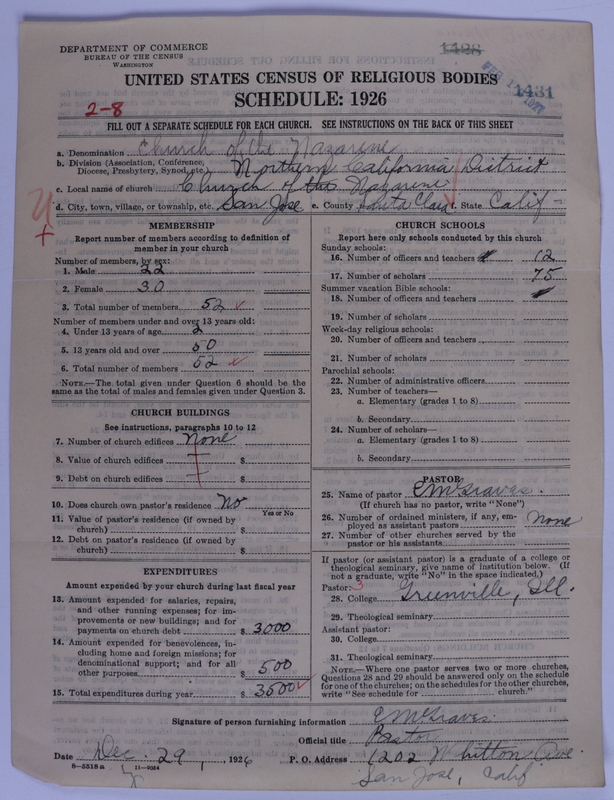 DEPARTMENT OF COMMERCE
BUREAU OF THE CENSUS
WASHINGTON
1428
1431
UNITED STATES CENSUS OF RELIGIOUS BODIES
SCHEDULE: 1926
2-8
FILL OUT A SEPARATE SCHEDULE FOR EACH CHURCH. SEE INSTRUCTIONS ON THE BACK OF THIS SHEET
a. Denomination Church of the Nazarene
b. Division (Association, Conference, Diocese, Presbytery, Synod, etc.) Northern California District
c. Local name of church Church of the Nazarene
d. City, town, village, or township, etc. San Jose e. County Santa Clara f. State Calif
MEMBERSHIP
Report number of members according to definition of member in your church
Number of members, by sex:
1. Male 22
2. Female 30
3. Total number of members 52
Number of members under and over 13 years old:
4. Under 13 years of age 2
5. 13 years old and over 50
6. Total number of members 52
NOTE.—The total given under Question 6 should be the same as the total of males and females given under Question 3.
CHURCH BUILDINGS
See instructions, paragraphs 10 to 12
7. Number of church edifices None
8. Value of church edifices $
9. Debt on church edifices $
10. Does church own pastor's residence? No
Yes or No
11. Value of pastor's residence (if owned by church) $
12. Debt on pastor's residence (if owned by church) $
EXPENDITURES
Amount expended by your church during last fiscal year
13. Amount expended for salaries, repairs, and other running expenses; for improvements or new buildings; and for payments on church debt $ 3000
14. Amount expended for benevolences, including home and foreign missions; for denominational support; and for all other purposes $ 500
15. Total expenditures during year $ 3500
CHURCH SCHOOLS
Report here only schools conducted by this church
Sunday schools:
16. Number of officers and teachers 12
17. Number of scholars 75
Summer vacation Bible schools:
18. Number of officers and teachers
19. Number of scholars
Week-day religious schools:
20. Number of officers and teachers
21. Number of scholars
Parochial schools:
22. Number of administrative officers
23. Number of teachers—
a. Elementary (grades 1 to 8)
b. Secondary
24. Number of scholars—
a. Elementary (grades 1 to 8)
b. Secondary
PASTOR
25. Name of pastor E M Graves.
(If church has no pastor, write "None")
26. Number of ordained ministers, if any, employed as assistant pastors None
27. Number of other churches served by the pastor or his assistants
If pastor (or assistant pastor) is a graduate of a college or theological seminary, give name of institution below. (If not a graduate, write "No" in the space indicated.)
Pastor: 3
28. College Greenville, Ill.
29. Theological seminary
Assistant pastor:
30. College
31. Theological seminary
NOTE.—Where one pastor serves two or more churches, Questions 28 and 29 should be answered only on the schedule for one of the churches; on the schedules for the other churches, write "See schedule for church."
Signature of person furnishing information E M Graves.
Official title Pastor
Date Dec 29, 1926 P. O. Address 1202 Whitton Ave.
8—5518a 11—9034
San Jose, Calif